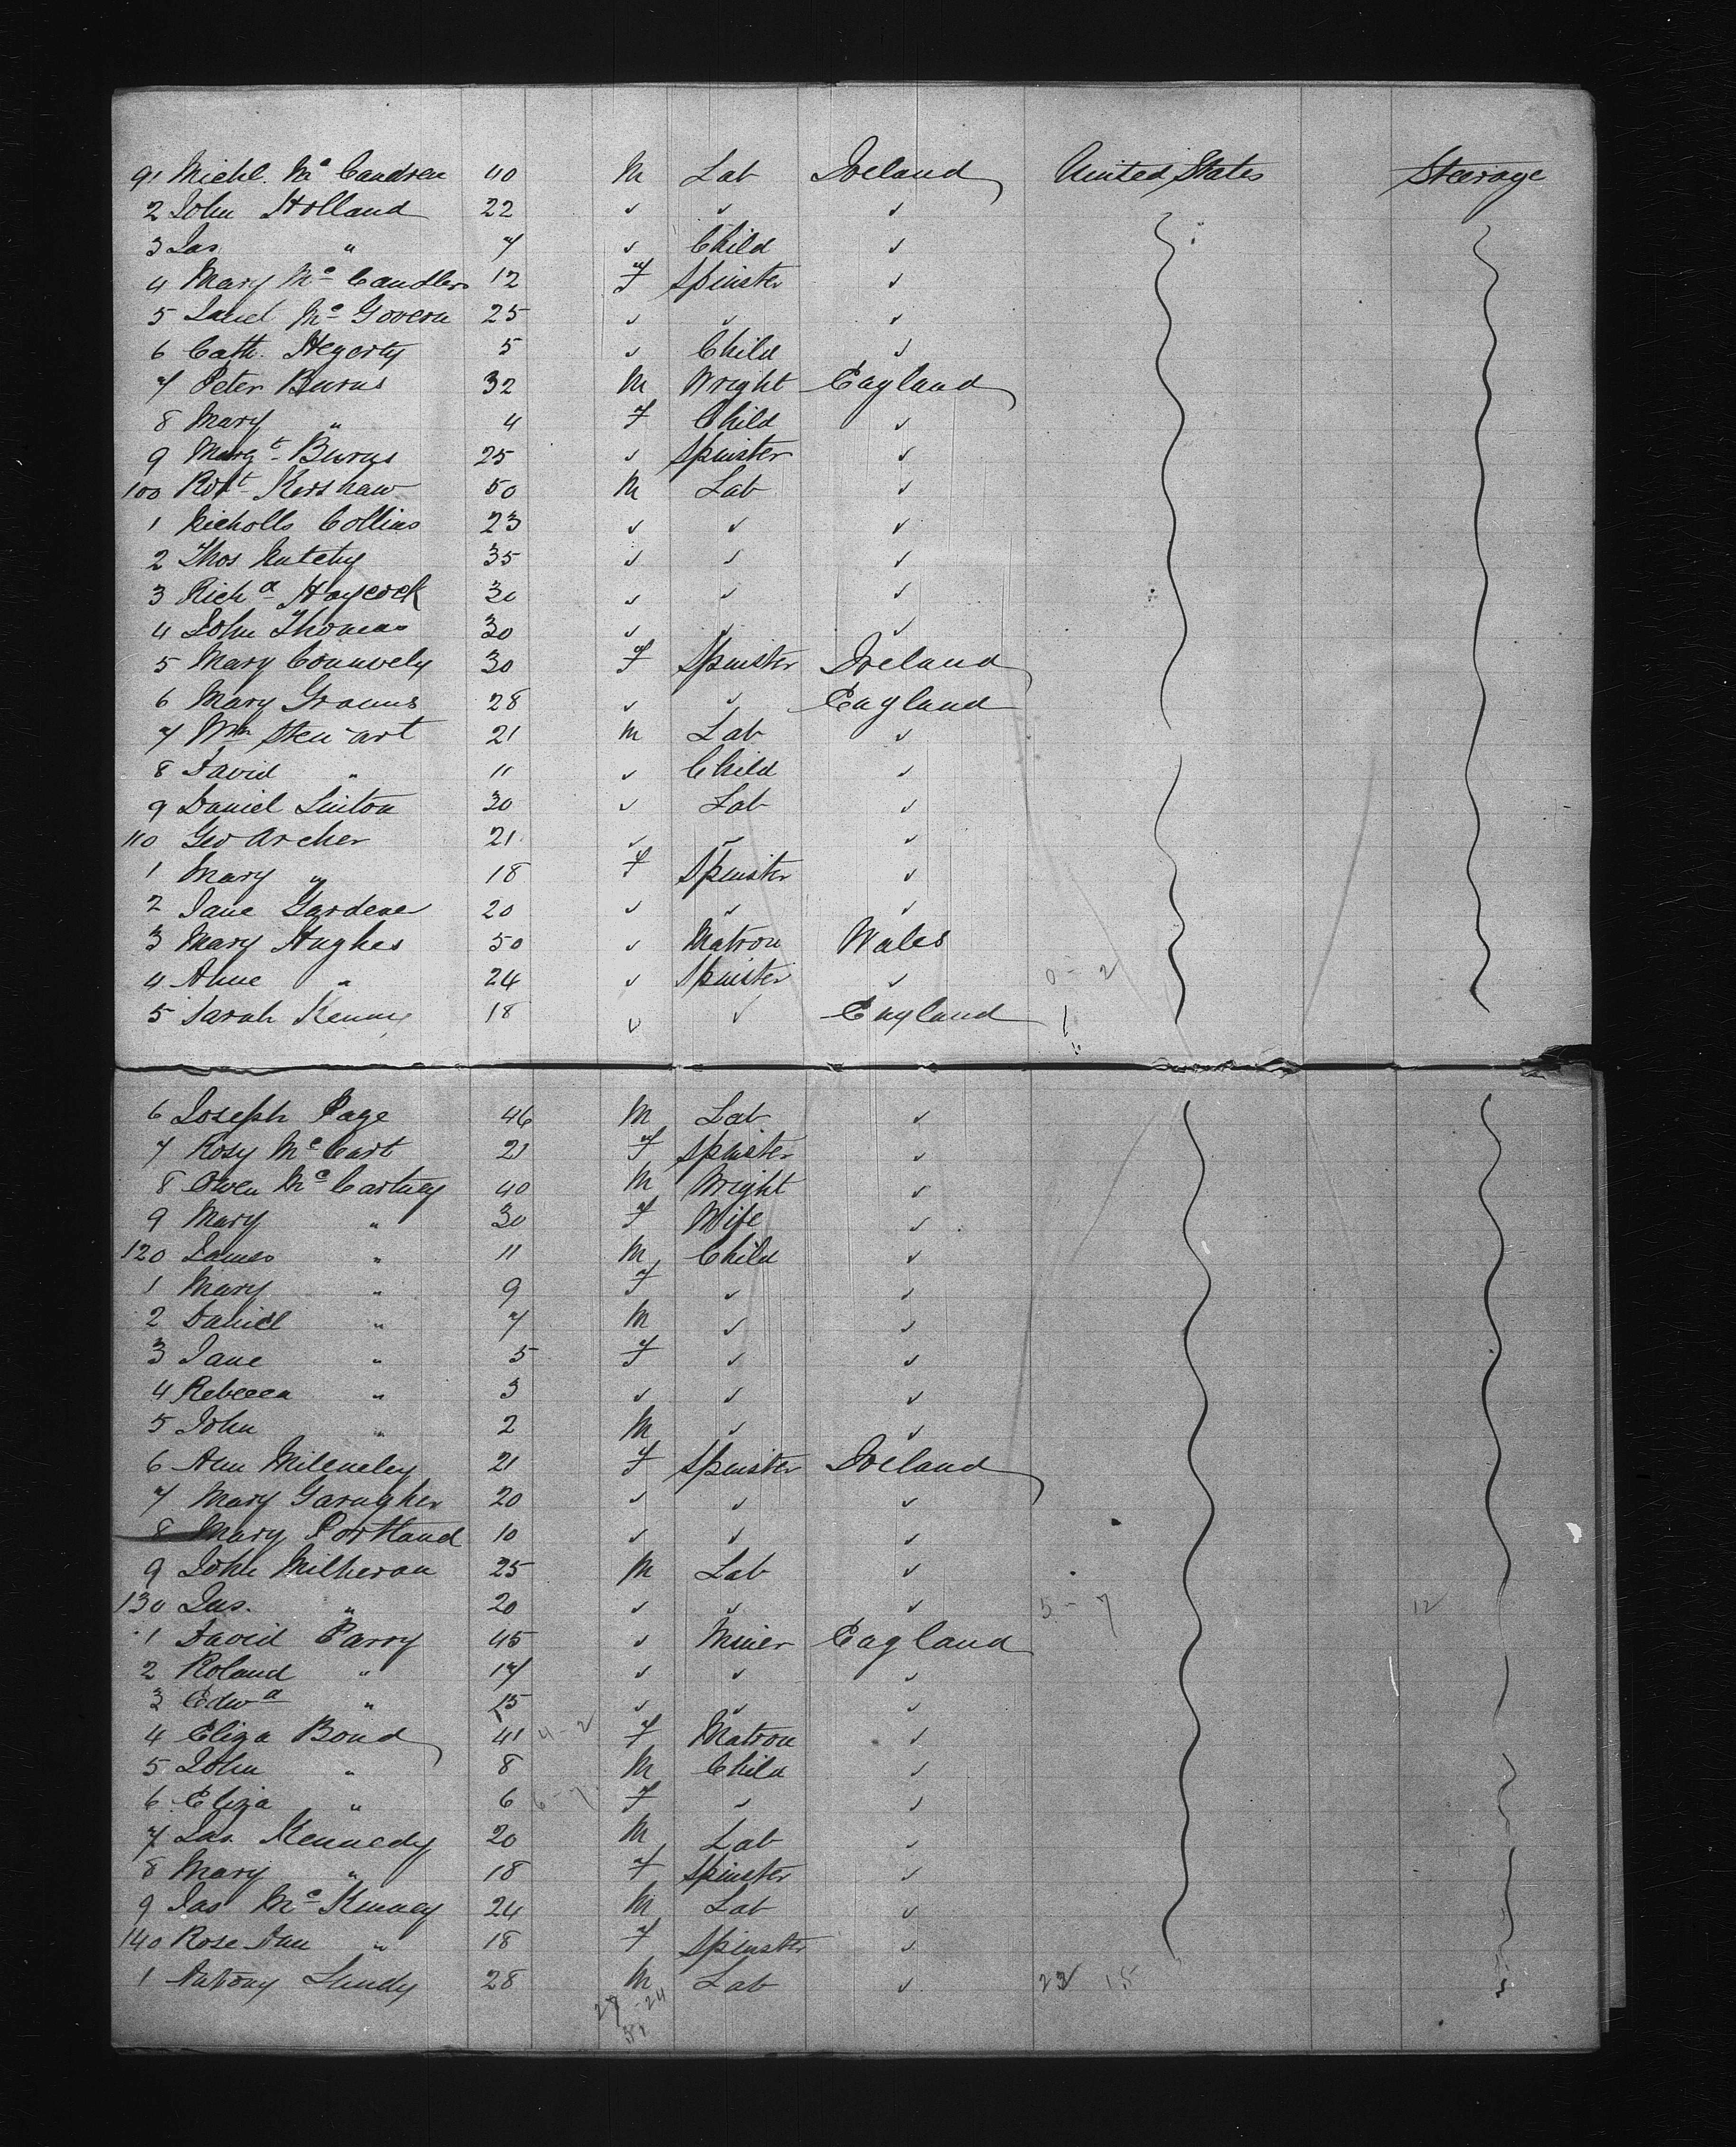 91 Michl. Mc Candrew 40 M Lab Ireland United States Steerage
2 John Holland 22 ✓ ✓ ✓
3 Jas " 7 ✓ Child ✓
4 Mary Mc Candlers 12 F Spinster ✓
5 Mc Govern 25 ✓ ✓ ✓
6 Cath. Hegerty 5 ✓ Child ✓
7 Peter Burns 32 M Wright England
8 Mary " 4 F Child ✓
9 Margt Burns 25 ✓ Spinster ✓
100 Robt Kershaw 50 M Lab ✓
1 Nicholls Collins 23 ✓ ✓ ✓
2 Thos 35 ✓ ✓ ✓
3 Richd Haycock 30 ✓ ✓ ✓
4 John Thomas 30 ✓ ✓ ✓
5 Mary Connvely 30 F Spinster Ireland
6 Mary 28 ✓ ✓ England
7 Wm Stewart 21 M Lab ✓
8 David " 11 ✓ Child ✓
9 Daniel Linton 30 ✓ Lab ✓
110 Geo Archer 21 ✓ ✓ ✓
1 Mary " 18 F Spinster ✓
2 Jane Gardener 20 ✓ ✓ ✓
3 Mary Hughes 50 ✓ Matron Wales
4 Anne " 24 ✓ Spinster ✓ 0 - 2
5 Sarah Kenny 18 ✓ ✓ England
6 Joseph Page 46 M Lab ✓
7 Rosy Mc Cart 21 F Spinster ✓
8 Owen Mc Cartney 40 M Wright ✓
9 Mary " 30 F Wife ✓
120 James " 11 M Child ✓
1 Mary " 9 F ✓ ✓
2 Daniel " 7 M ✓ ✓
3 Jane " 5 F ✓ ✓
4 Rebecca " 3 ✓ ✓ ✓
5 John " 2 M ✓ ✓
6 Ann 21 F Spinster Ireland
7 Mary Garagher 20 ✓ ✓ ✓
8 Mary Portland 10 ✓ ✓ ✓
9 John Milheran 25 M Lab ✓
130 Jas. " 20 ✓ ✓ ✓ 5 - 7 12
1 David Parry 45 ✓ Miner England
2 Roland " 17 ✓ ✓ ✓
3 Edwd " 15 ✓ ✓ ✓
4 Eliza Bond 41 4-2 F Matron ✓
5 John " 8 M Child ✓
6 Eliza " 6 6-7 F ✓ ✓
7 Jas. Kennedy 20 M Lab ✓
8 Mary " 18 F Spinster ✓
9 Jas Mc Kinney 24 M Lab ✓
140 Rose Ann " 18 F Spinster ✓
1 Antony Lundy 28 M Lab ✓ 23 15
27 - 24
51